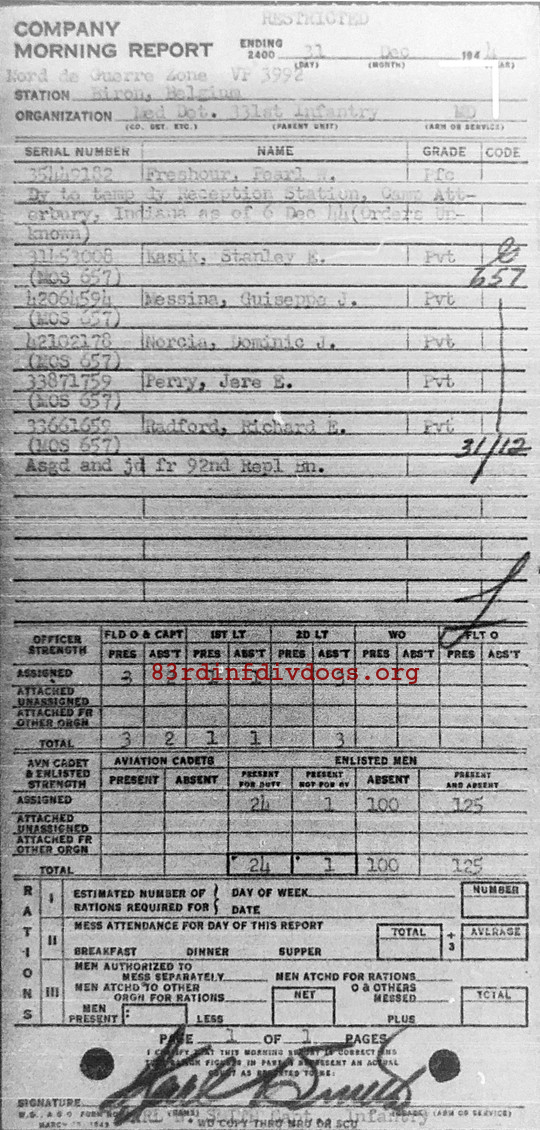 RESTRICTED
COMPANY
MORNING REPORT ENDING 2400 31 Dec 1944
(DAY) (MONTH) (YEAR)
Nord de Guerre Zone VP 3992
STATION Biron, Belgium
ORGANIZATION Med Det. 331st Infantry MD
(CO. DET. ETC.) (PARENT UNIT) (ARM OR SERVICE)
SERIAL NUMBER NAME GRADE CODE
35449182 Freshour, Pearl Pfc
Dy to temp dy Reception Station, Camp Att-
erbury, Indiana as of 6 Dec 44(Orders Un-
known)
31453008 Kasik, Stanley E. Pvt
(MOS 657) 657
42064594 Messina, Guiseppe J. Pvt
(MOS 657)
42102178 Norcia, Dominic J. Pvt
(MOS 657)
33871759 Perry, Jere E. Pvt
(MOS 657)
33661659 Radford, Richard E. Pvt
(MOS 657) 31/12
Asgd and jd fr 92nd Repl Bn.
OFFICER STRENGTH FLD O & CAPT 1ST LT 2D LT WO FLT O
PRES ABS'T PRES ABS'T PRES ABS'T PRES ABS'T PRES ABS'T
ASSIGNED 3 2 1 1 3
83rdinfdivdocs.org
ATTACHED UNASSIGNED
ATTACHED FR OTHER ORGN
TOTAL 3 2 1 1 3
AVN CADET & ENLISTED STRENGTH AVIATION CADETS ENLISTED MEN
PRESENT ABSENT PRESENT FOR DUTY PRESENT NOT FOR DY ABSENT PRESENT AND ABSENT
ASSIGNED 24 1 100 125
ATTACHED UNASSIGNED
ATTACHED FR OTHER ORGN
TOTAL 24 1 100 125
RATIONS
I ESTIMATED NUMBER OF RATIONS REQUIRED FOR DAY OF WEEK DATE NUMBER
II MESS ATTENDANCE FOR DAY OF THIS REPORT TOTAL + 3 AVERAGE
BREAKFAST DINNER SUPPER
III MEN AUTHORIZED TO MESS SEPARATELY MEN ATCHD FOR RATIONS
MEN ATCHD TO OTHER ORGN FOR RATIONS NET O & OTHERS MESSED TOTAL
MEN PRESENT: LESS PLUS
PAGE 1 OF 1 PAGES
I CERTIFY THAT THIS MORNING REPORT IS CORRECT AND
SIGNATURE
W.D., A.G.O. FORM NO. (NAME) (GRADE) (ARM OR SERVICE)
SMITH Capt Infantry
WD COPY THRU MRU OR SCU